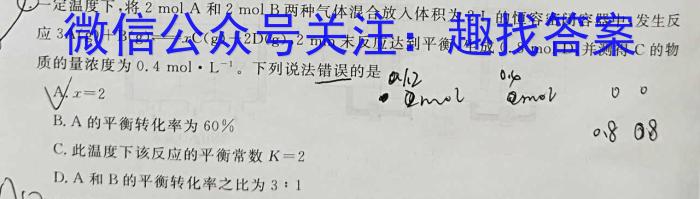 一定温度下,将 2 mol A 和 2 mol B 两种气体混合放入体积为 2 L 的恒容密闭容器中,发生反
应 3A(g)+B(g) xC(g)+2D(g), 2 min 末反应达到平衡,生成 0.8 mol D,并测得 C 的物
微信公众号关注:趣找答案
质的量浓度为 0.4 mol·L⁻¹。下列说法错误的是
0.12 0.4
A. x=2 2mol 2mol 0 0
B. A 的平衡转化率为 60% 0.8 0.8
C. 此温度下该反应的平衡常数 K=2
D. A 和 B 的平衡转化率之比为 3:1